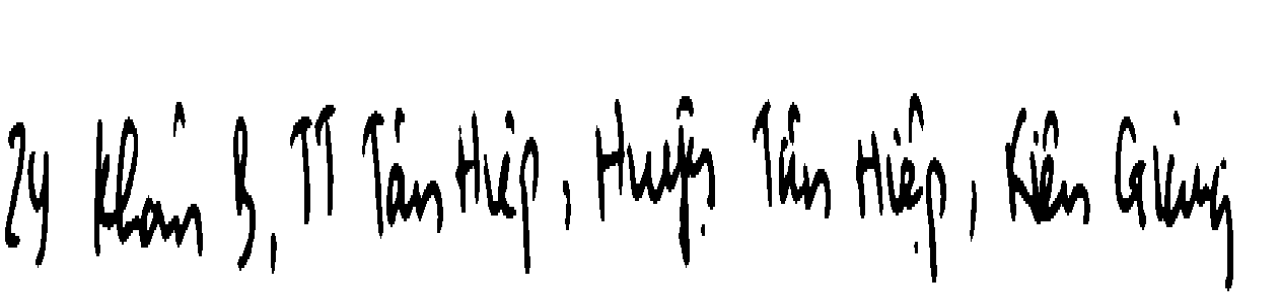 24 Khóm B, TT Tân Hiệp, Huyện Tân Hiệp, Kiên Giang